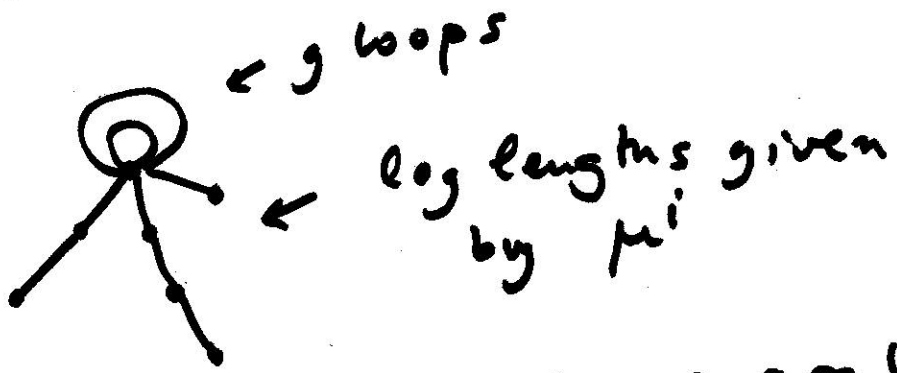 ← g loops
← leg lengths given
by μⁱ